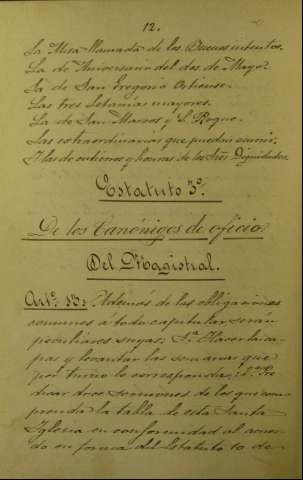 12.
La Misa llamada de los Buenos intentos.
La de Aniversario del dos de Mayo.
La de San Gregorio Ostiense.
Las tres Letanias mayores.
La de San Marcos y S. Roque.
Las extraordinarias que puedan ocurrir.
Y las de entierros y honras de los Sres Dignidades.
Estatuto 3º.
De los Canónigos de oficio.
Del Magistral.
Artº. 13: Además de las obligaciones
comunes á todo capitular serán
peculiares suyas: 1ª Hacer la ca-
pas y levantar las semanas que
por turno le corresponda: 2ª Pre-
dicar doce sermones de los que com-
prenda la tabla de esta Santa
Iglesia en conformidad al acuer-
do en forma del Estatuto 10 de-